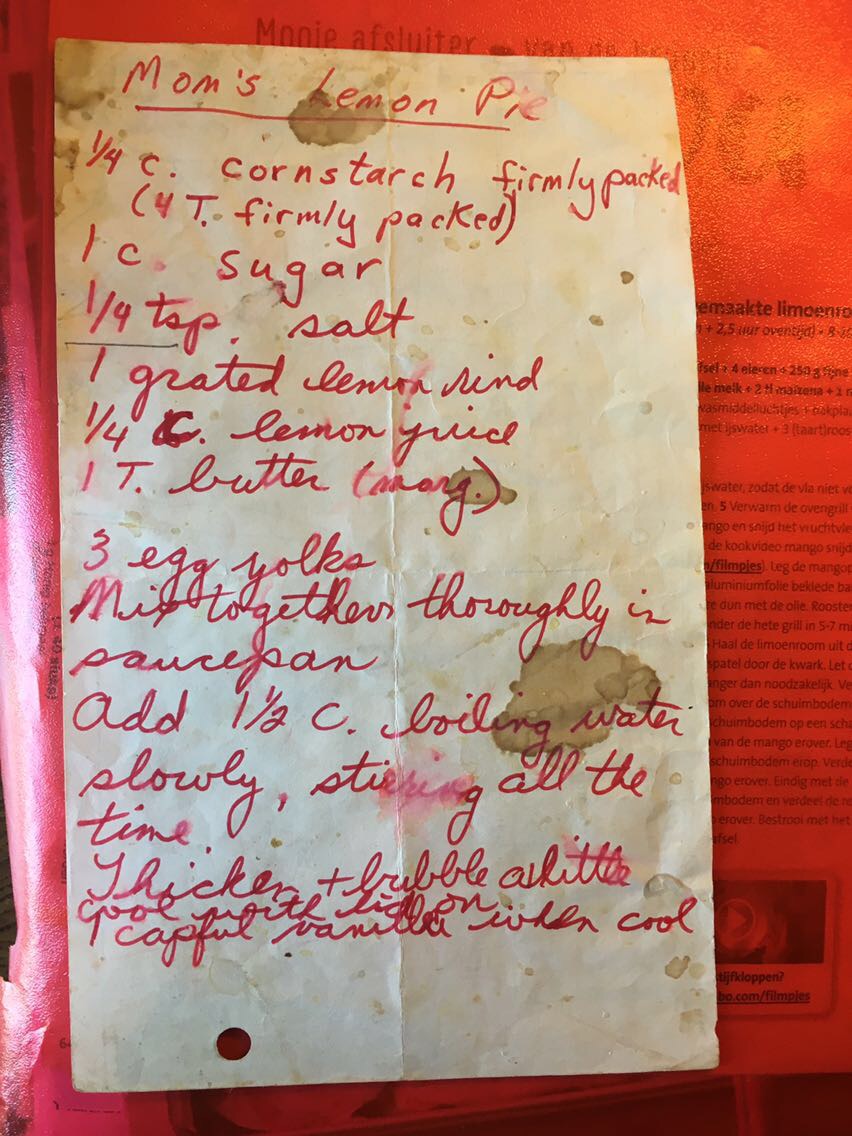 Mooie afsluiter
Mom's Lemon Pie
1/4 c. cornstarch firmly packed
(4 T. firmly packed)
1 c. sugar
1/4 tsp. salt
1 grated lemon rind
1/4 c. lemon juice
1 T. butter (marg.)
3 egg yolks
Mix together thoroughly in
saucepan
Add 1 1/2 c. boiling water
slowly, stirring all the
time.
Thicken + bubble a little
cool with lid on
1 capful vanilla when cool
emaakte limoenro
+ 2,5 uur oventijd) • 8-10
fsel • 4 eieren • 250 g fijne
lle melk • 2 tl maizena • 2 r
vasmiddelluchtjes • bakpla
met ijswater • 3 (taart)roos
jswater, zodat de vla niet ve
en. 5 Verwarm de ovengrill
ango en snijd het vruchtvle
de kookvideo mango snijd
n/filmpjes). Leg de mangop
aluminiumfolie beklede ba
te dun met de olie. Rooster
nder de hete grill in 5-7 mi
Haal de limoenroom uit d
spatel door de kwark. Let o
anger dan noodzakelijk. Ve
om over de schuimbodem
chuimbodem op een scha
van de mango erover. Leg
schuimbodem erop. Verde
ngo erover. Eindig met de
mbodem en verdeel de re
o erover. Bestrooi met het
afsel.
tijfkloppen?
bo.com/filmpjes